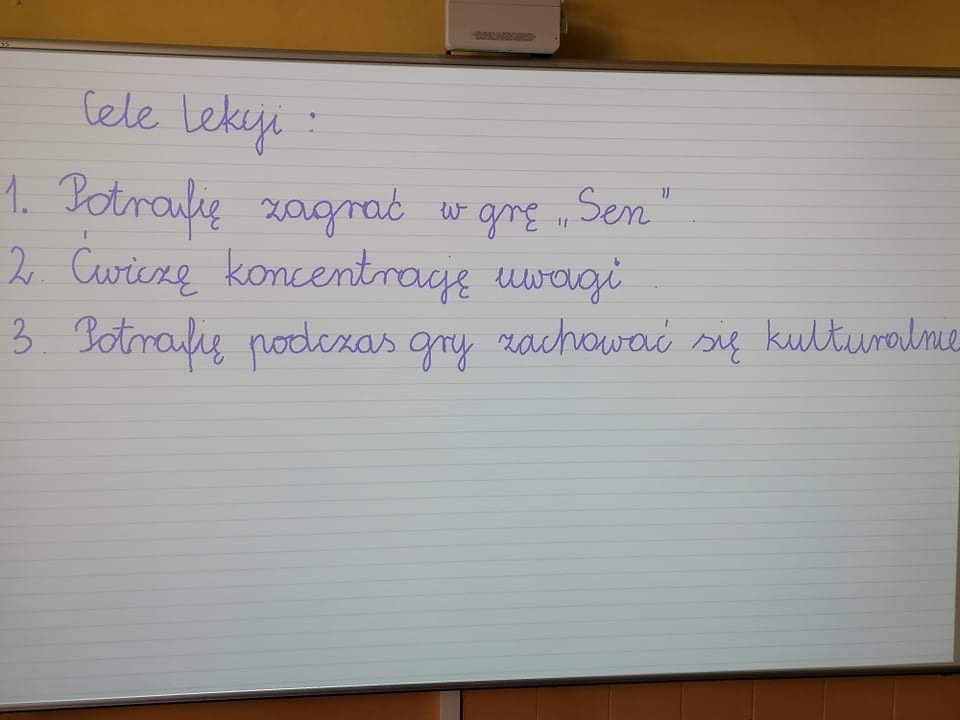 Cele lekcji :
1. Potrafię zagrać w grę „Sen”.
2. Ćwiczę koncentrację uwagi.
3. Potrafię podczas gry zachować się kulturalnie